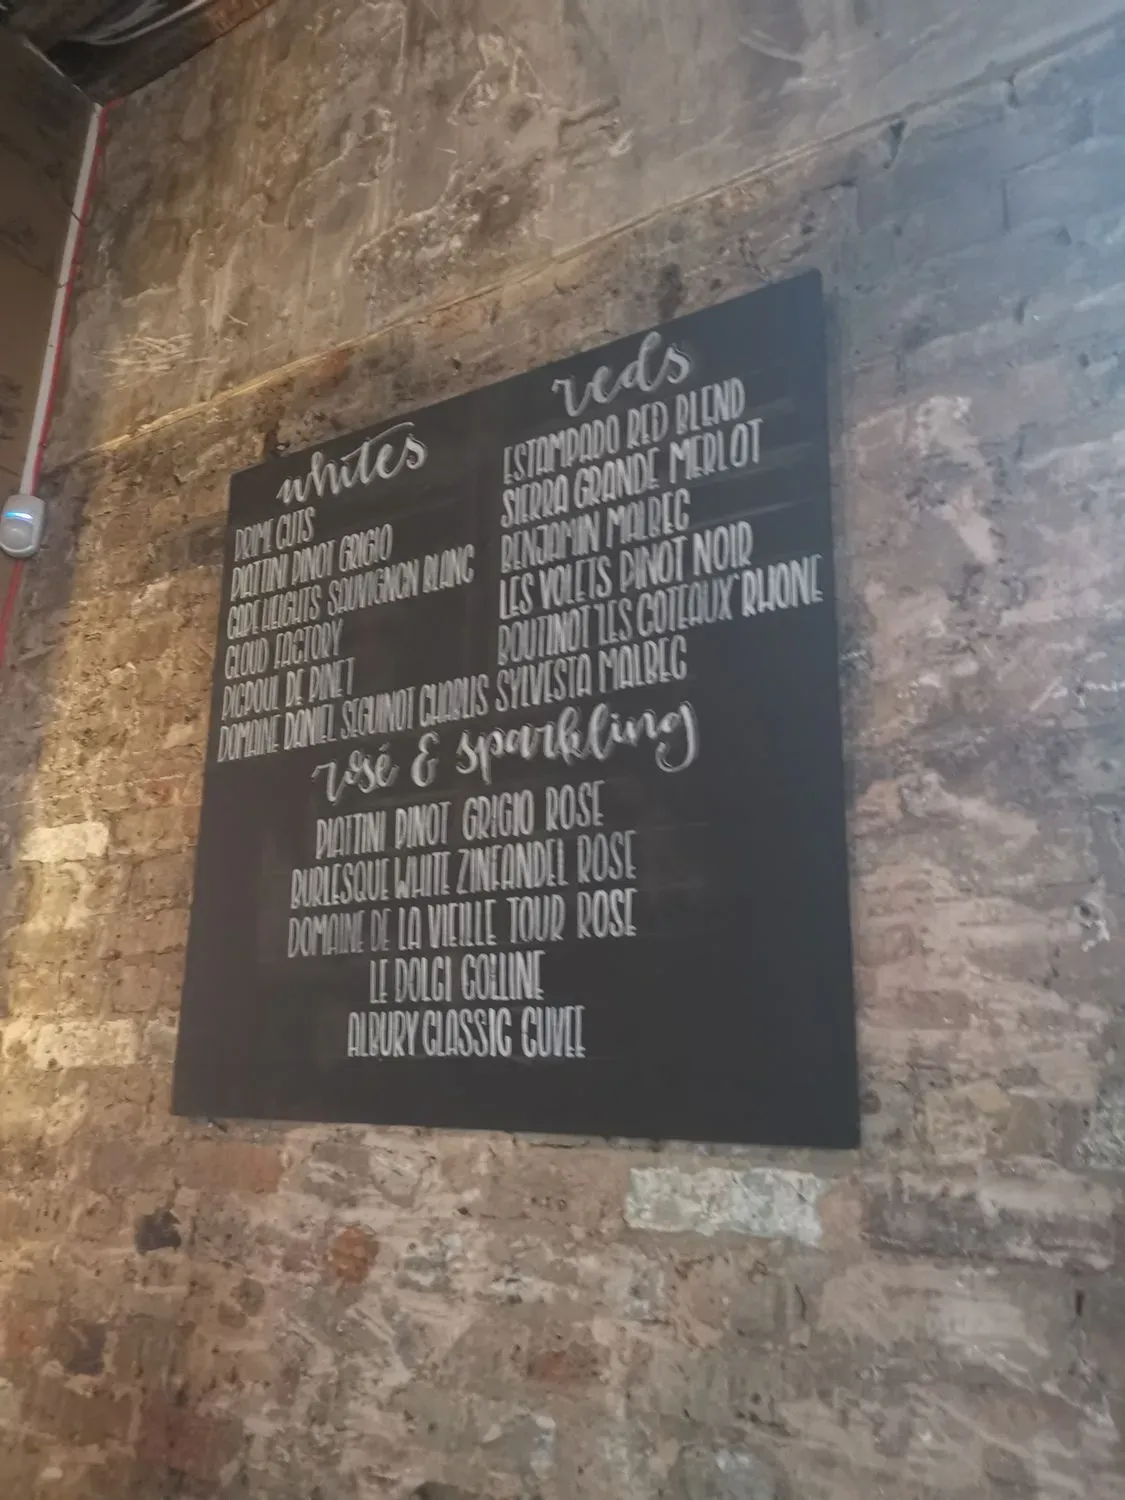 whites
PRIME CUTS
PIATTINI PINOT GRIGIO
CAPE HEIGHTS SAUVIGNON BLANC
CLOUD FACTORY
PICPOUL DE PINET
DOMAINE DANIEL SEGUINOT CHABLIS
reds
ESTAMPADO RED BLEND
SIERRA GRANDE MERLOT
BENJAMIN MALBEC
LES VOLETS PINOT NOIR
BOUTINOT "LES COTEAUX" RHONE
SYLVESTA MALBEC
rosé & sparkling
PIATTINI PINOT GRIGIO ROSE
BURLESQUE WHITE ZINFANDEL ROSE
DOMAINE DE LA VIEILLE TOUR ROSE
LE DOLCI COLLINE
ALBURY CLASSIC CUVEE